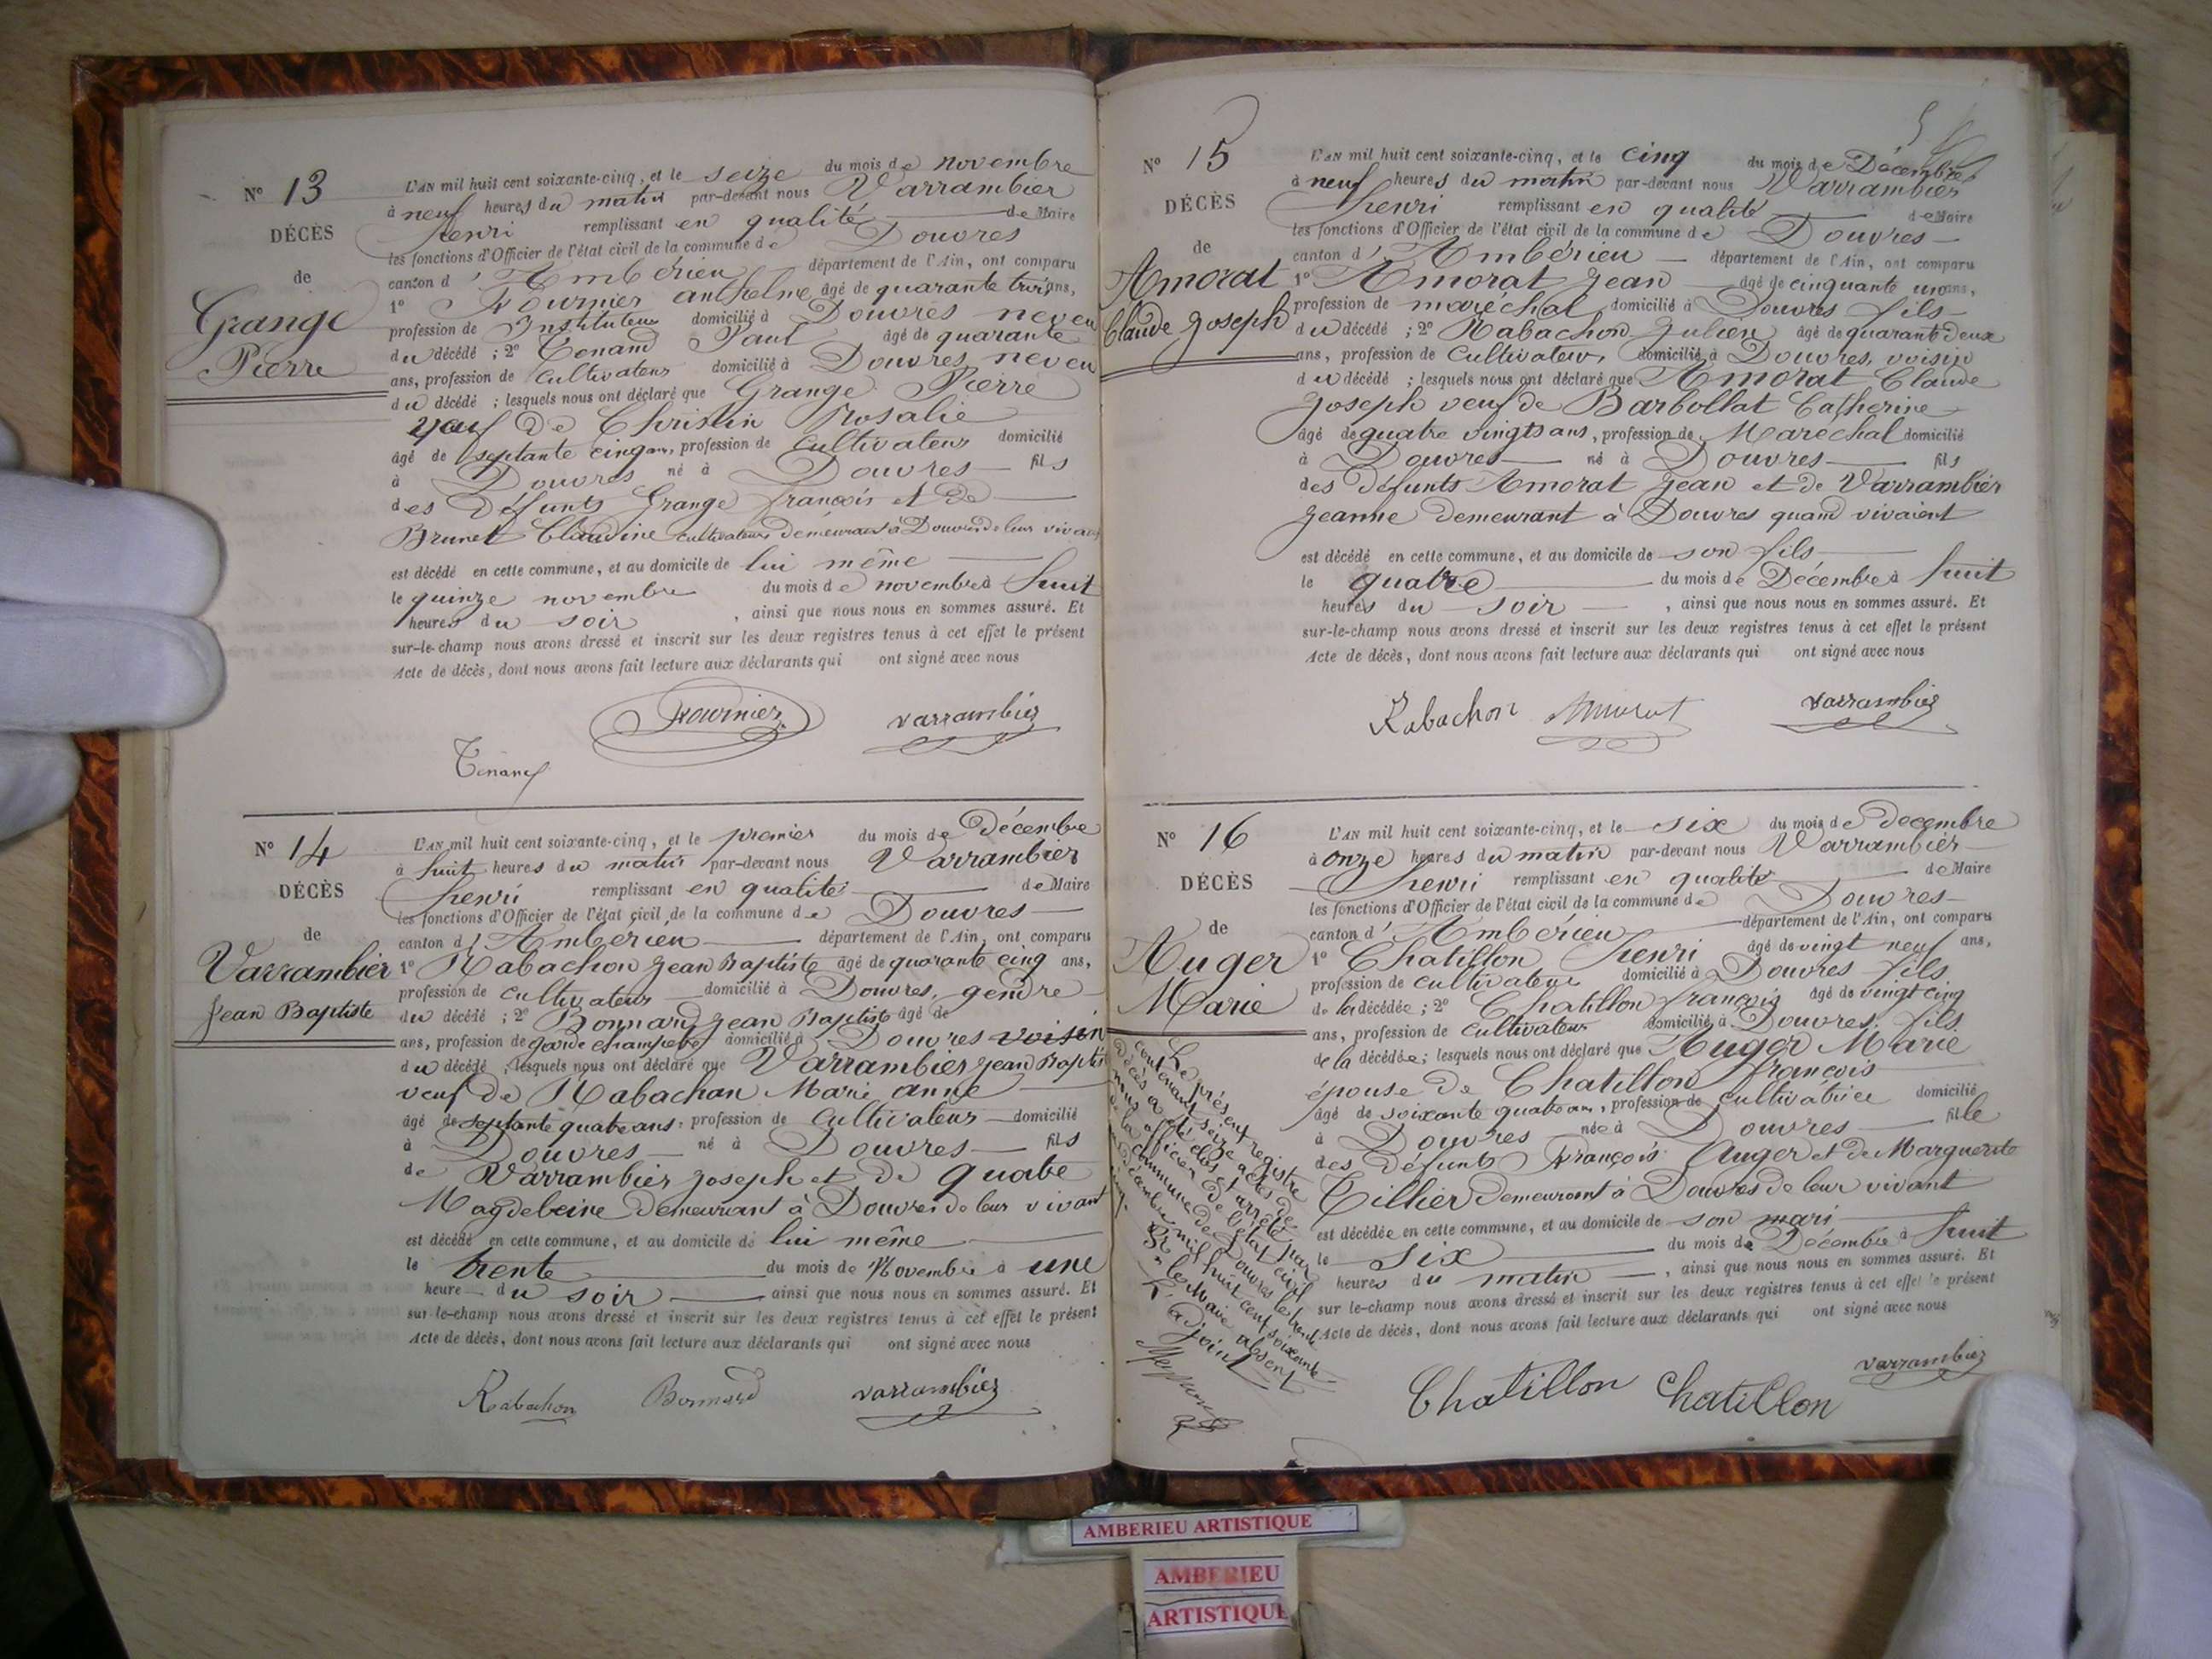 N° 13
DÉCÈS
de
Grange
Pierre
L'AN mil huit cent soixante-cinq, et le seize du mois de novembre
à neuf heures du matin par-devant nous Varrambier
henri remplissant en qualité de Maire
les fonctions d'Officier de l'état civil de la commune de Douvres
canton d'Ambérieu département de l'Ain, ont comparu
1° Fournier anthelme âgé de quarante trois ans,
profession de Instituteur domicilié à Douvres neveu
du décédé ; 2° Tenand Paul âgé de quarante
ans, profession de Cultivateur domicilié à Douvres, neveu
du décédé ; lesquels nous ont déclaré que Grange Pierre
veuf De Christin Rosalie
âgé de septante cinq ans, profession de Cultivateur domicilié
à Douvres né à Douvres fils
des Défunts Grange françois et De
Brunet Claudine cultivateurs demeurant à Douvres de leur vivant
est décédé en cette commune, et au domicile de lui même
le quinze novembre du mois de novembre à huit
heures du soir, ainsi que nous nous en sommes assuré. Et
sur-le-champ nous avons dressé et inscrit sur les deux registres tenus à cet effet le présent
Acte de décès, dont nous avons fait lecture aux déclarants qui ont signé avec nous
Fournier varrambier
Tenand
N° 14
DÉCÈS
de
Varrambier
Jean Baptiste
L'AN mil huit cent soixante-cinq, et le premier du mois de Décembre
à huit heures du matin par-devant nous Varrambier
henri remplissant en qualité de Maire
les fonctions d'Officier de l'état civil de la commune de Douvres
canton d'Amberieu département de l'Ain, ont comparu
1° Rabachon Jean Baptiste âgé de quarante cinq ans,
profession de Cultivateur domicilié à Douvres, gendre
du décédé ; 2° Bonnard Jean Baptiste âgé de
ans, profession de garde champetre domicilié à Douvres voisin
du décédé ; lesquels nous ont déclaré que Varrambier Jean Bapte
veuf de Rabachan Marie anne
âgé de septante quatre ans, profession de Cultivateur domicilié
à Douvres né à Douvres fils
de Varrambier Joseph et de Quatre
Magdeleine Demeurant à Douvres de leur vivant
est décédé en cette commune, et au domicile de lui même
le trente du mois de Novembre à une
heure du soir ainsi que nous nous en sommes assuré. Et
sur-le-champ nous avons dressé et inscrit sur les deux registres tenus à cet effet le présent
Acte de décès, dont nous avons fait lecture aux déclarants qui ont signé avec nous
Rabachon Bonnard varrambier
N° 15
DÉCÈS
de
Amorat
Claude Joseph
L'AN mil huit cent soixante-cinq, et le cinq du mois de Décembre
à neuf heures du matin par-devant nous Varrambier
henri remplissant en qualité de Maire
les fonctions d'Officier de l'état civil de la commune de Douvres
canton d'Ambérieu département de l'Ain, ont comparu
1° Amorat Jean âgé de cinquante un ans,
profession de maréchal domicilié à Douvres fils
du décédé ; 2° Rabachon Julien âgé de quarante deux
ans, profession de Cultivateur domicilié à Douvres, voisin
du décédé ; lesquels nous ont déclaré que Amorat Claude
Joseph veuf de Barbollat Catherine
âgé de quatre vingts ans, profession de Maréchal domicilié
à Douvres né à Douvres fils
des Défunts Amorat Jean et de Varrambier
Jeanne demeurant à Douvres quand vivaient
est décédé en cette commune, et au domicile de son fils
le quatre du mois de Décembre à huit
heures du soir, ainsi que nous nous en sommes assuré. Et
sur-le-champ nous avons dressé et inscrit sur les deux registres tenus à cet effet le présent
Acte de décès, dont nous avons fait lecture aux déclarants qui ont signé avec nous
Rabachon Amorat varrambier
N° 16
DÉCÈS
de
Auger
Marie
L'AN mil huit cent soixante-cinq, et le six du mois de Decembre
à onze heures du matin par-devant nous Varrambier
henri remplissant en qualité de Maire
les fonctions d'Officier de l'état civil de la commune de Douvres
canton d'Ambérieu département de l'Ain, ont comparu
1° Chatillon henri âgé de vingt neuf ans,
profession de cultivateur domicilié à Douvres fils
de la décédée ; 2° Chatillon françois âgé de vingt cinq
ans, profession de Cultivateur domicilié à Douvres, fils
de la décédée ; lesquels nous ont déclaré que Auger Marie
épouse de Chatillon françois
âgé de soixante quatre ans, profession de cultivatrice domicilié
à Douvres née à Douvres fille
des Défunts François Auger et de Marguerite
Tillier demeurant à Douvres de leur vivant
est décédée en cette commune, et au domicile de son mari
le six du mois de Décembre à huit
heures du matin, ainsi que nous nous en sommes assuré. Et
sur le-champ nous avons dressé et inscrit sur les deux registres tenus à cet effet le présent
Acte de décès, dont nous avons fait lecture aux déclarants qui ont signé avec nous
Chatillon Chatillon varrambier
Le présent registre
contenant seize actes de
décès a été clos et arrêté par
nous officier de l'état civil
de la commune de Douvres le trente
décembre mil huit cent soixante
cinq.
Pr le Maire absent
L'adjoint
AMBERIEU ARTISTIQUE
AMBERIEU
ARTISTIQUE